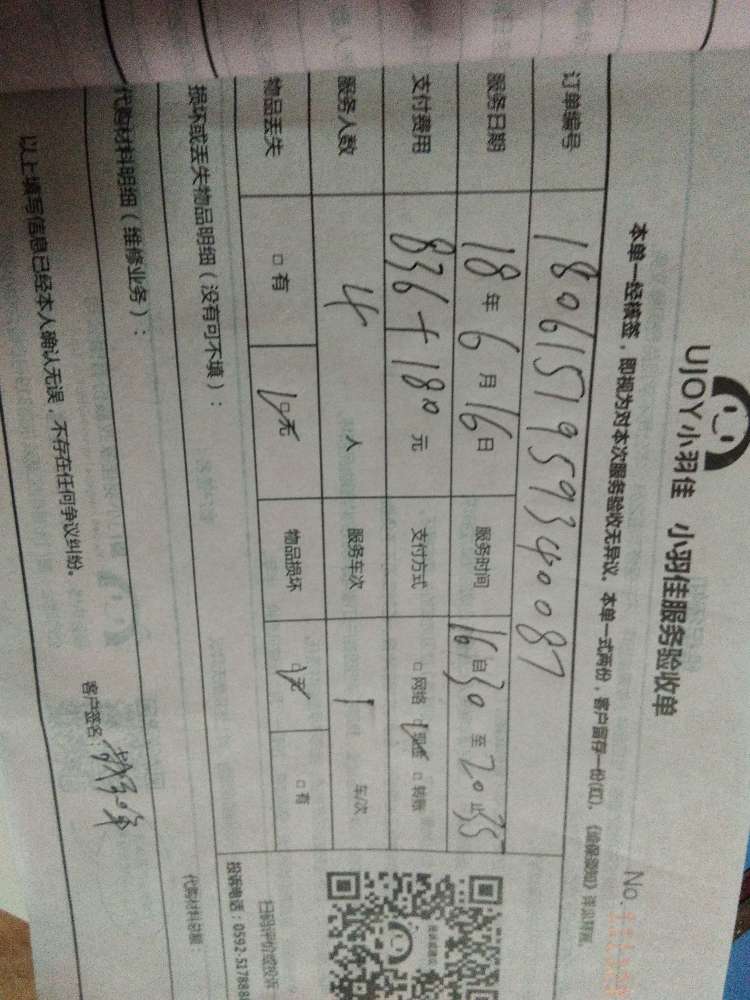 UJOY小羽佳 小羽佳服务验收单
No.
本单一经核签，即视为对本次服务验收无异议。本单一式两份，客户留存一份(红)。
订单编号 1806151959340087
服务日期 18年6月16日 服务时间 16自30至20止35
支付费用 836+180元 支付方式 □网络 □现金 □转账
服务人数 4人 服务车次 1 车/次
物品丢失 □有 □无 物品损坏 □无 □有
损坏或丢失物品明细（没有可不填）：
扫码评价或投诉
投诉电话：0592-517888
代购材料明细（维修业务）：
代购材料总额：
以上填写信息已经本人确认无误，不存在任何争议纠纷。
客户签名：